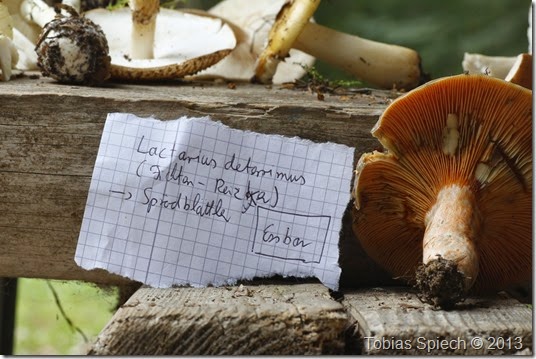 Lactarius deterrimus
(Fichten-Reizka)
→ Sprödblättler
Essbar
Tobias Spiech © 2013